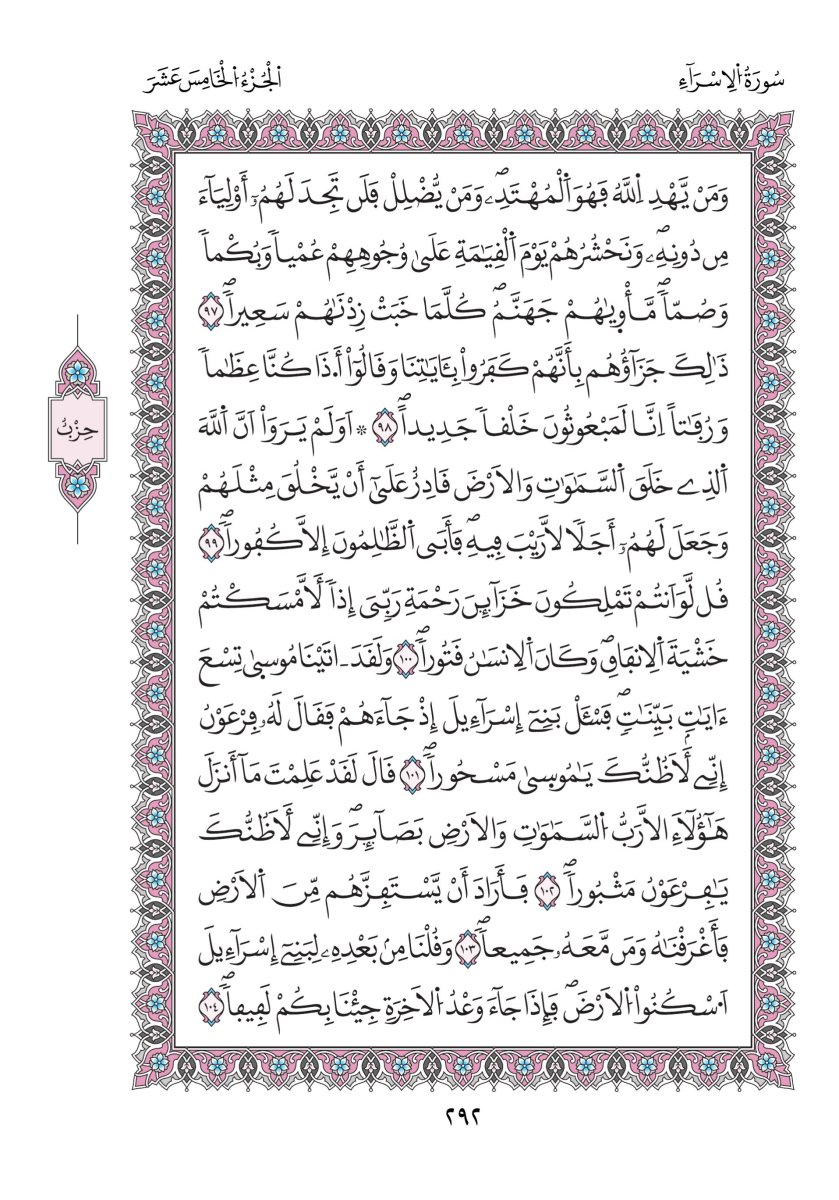 سُورَةُ الْإِسْرَآءِ
اَلْجُزْءُ الْخَامِسَ عَشَرَ
وَمَنْ يَّهْدِ اِللَّهُ فَهُوَ اَلْمُهْتَدِۦۖ وَمَنْ يُّضْلِلْ فَلَن تَجِدَ لَهُمُۥٓ أَوْلِيَآءَ
مِن دُونِهِۦۖ وَنَحْشُرُهُمْ يَوْمَ اَلْقِيَٰمَةِ عَلَىٰ وُجُوهِهِمْ عُمْياٗ وَبُكْماٗ
وَصُمّاٗۖ مَّأْوِيٰهُمْ جَهَنَّمُۖ كُلَّمَا خَبَتْ زِدْنَٰهُمْ سَعِيراٗۖ ٩٧
ذَٰلِكَ جَزَآؤُهُم بِأَنَّهُمْ كَفَرُواْ بِـَٔايَٰتِنَا وَقَالُوٓاْ أَ.ذَا كُنَّا عِظَٰماٗ
وَرُفَٰتاً اِنَّا لَمَبْعُوثُونَ خَلْقاٗ جَدِيداًۖ ٩٨ * اَوَلَمْ يَرَوَاْ اَنَّ اَللَّهَ
اَلذِے خَلَقَ اَلسَّمَٰوَٰتِ وَالَارْضَ قَادِرٌ عَلَىٰٓ أَنْ يَّخْلُقَ مِثْلَهُمْ
وَجَعَلَ لَهُمُۥٓ أَجَلاٗ لَّا رَيْبَ فِيهِۖ فَأَبَى اَلظَّٰلِمُونَ إِلَّا كُفُوراٗۖ ٩٩
قُل لَّوَ اَنتُمْ تَمْلِكُونَ خَزَآئِنَ رَحْمَةِ رَبِّيَ إِذاٗ لَّأَمْسَكْتُمْ
خَشْيَةَ اَلِانفَاقِۖ وَكَانَ اَلِانسَٰنُ قَتُوراٗۖ ١٠٠ وَلَقَدَ ـ اتَيْنَا مُوسىٰ تِسْعَ
ءَايَٰتِۢ بَيِّنَٰتٖۖ فَسْـَٔلْ بَنِےٓ إِسْرَآءِيلَ إِذْ جَآءَهُمْ فَقَالَ لَهُۥ فِرْعَوْنُ
إِنِّے لَأَظُنُّكَ يَٰمُوسىٰ مَسْحُوراٗۖ ١٠١ قَالَ لَقَدْ عَلِمْتَ مَآ أَنزَلَ
هَٰٓؤُلَآءِ اِلَّا رَبُّ اُلسَّمَٰوَٰتِ وَالَارْضِ بَصَآئِرَۖ وَإِنِّے لَأَظُنُّكَ
يَٰفِرْعَوْنُ مَثْبُوراٗۖ ١٠٢ فَأَرَادَ أَنْ يَّسْتَفِزَّهُم مِّنَ اَلَارْضِ
فَأَغْرَقْنَٰهُ وَمَن مَّعَهُۥ جَمِيعاٗۖ ١٠٣ وَقُلْنَا مِنۢ بَعْدِهِۦ لِبَنِےٓ إِسْرَآءِيلَ
اَسْكُنُواْ اُلَارْضَۖ فَإِذَا جَآءَ وَعْدُ اُلَاخِرَةِ جِئْنَا بِكُمْ لَفِيفاٗۖ ١٠٤
حِزْبٌ
٢٩٢